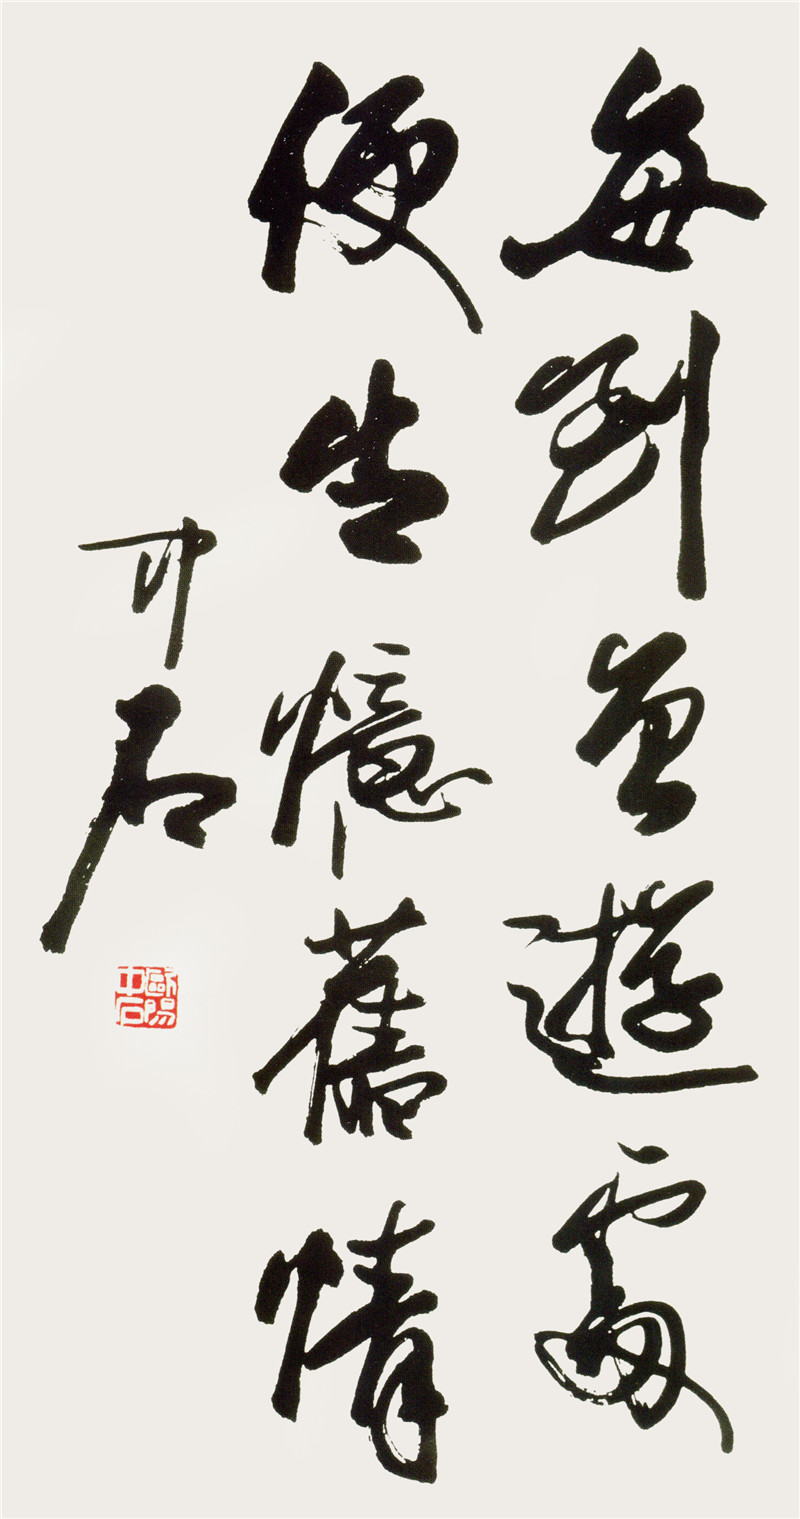 每到曾遊處
便生憶舊情
中石
歐陽中石